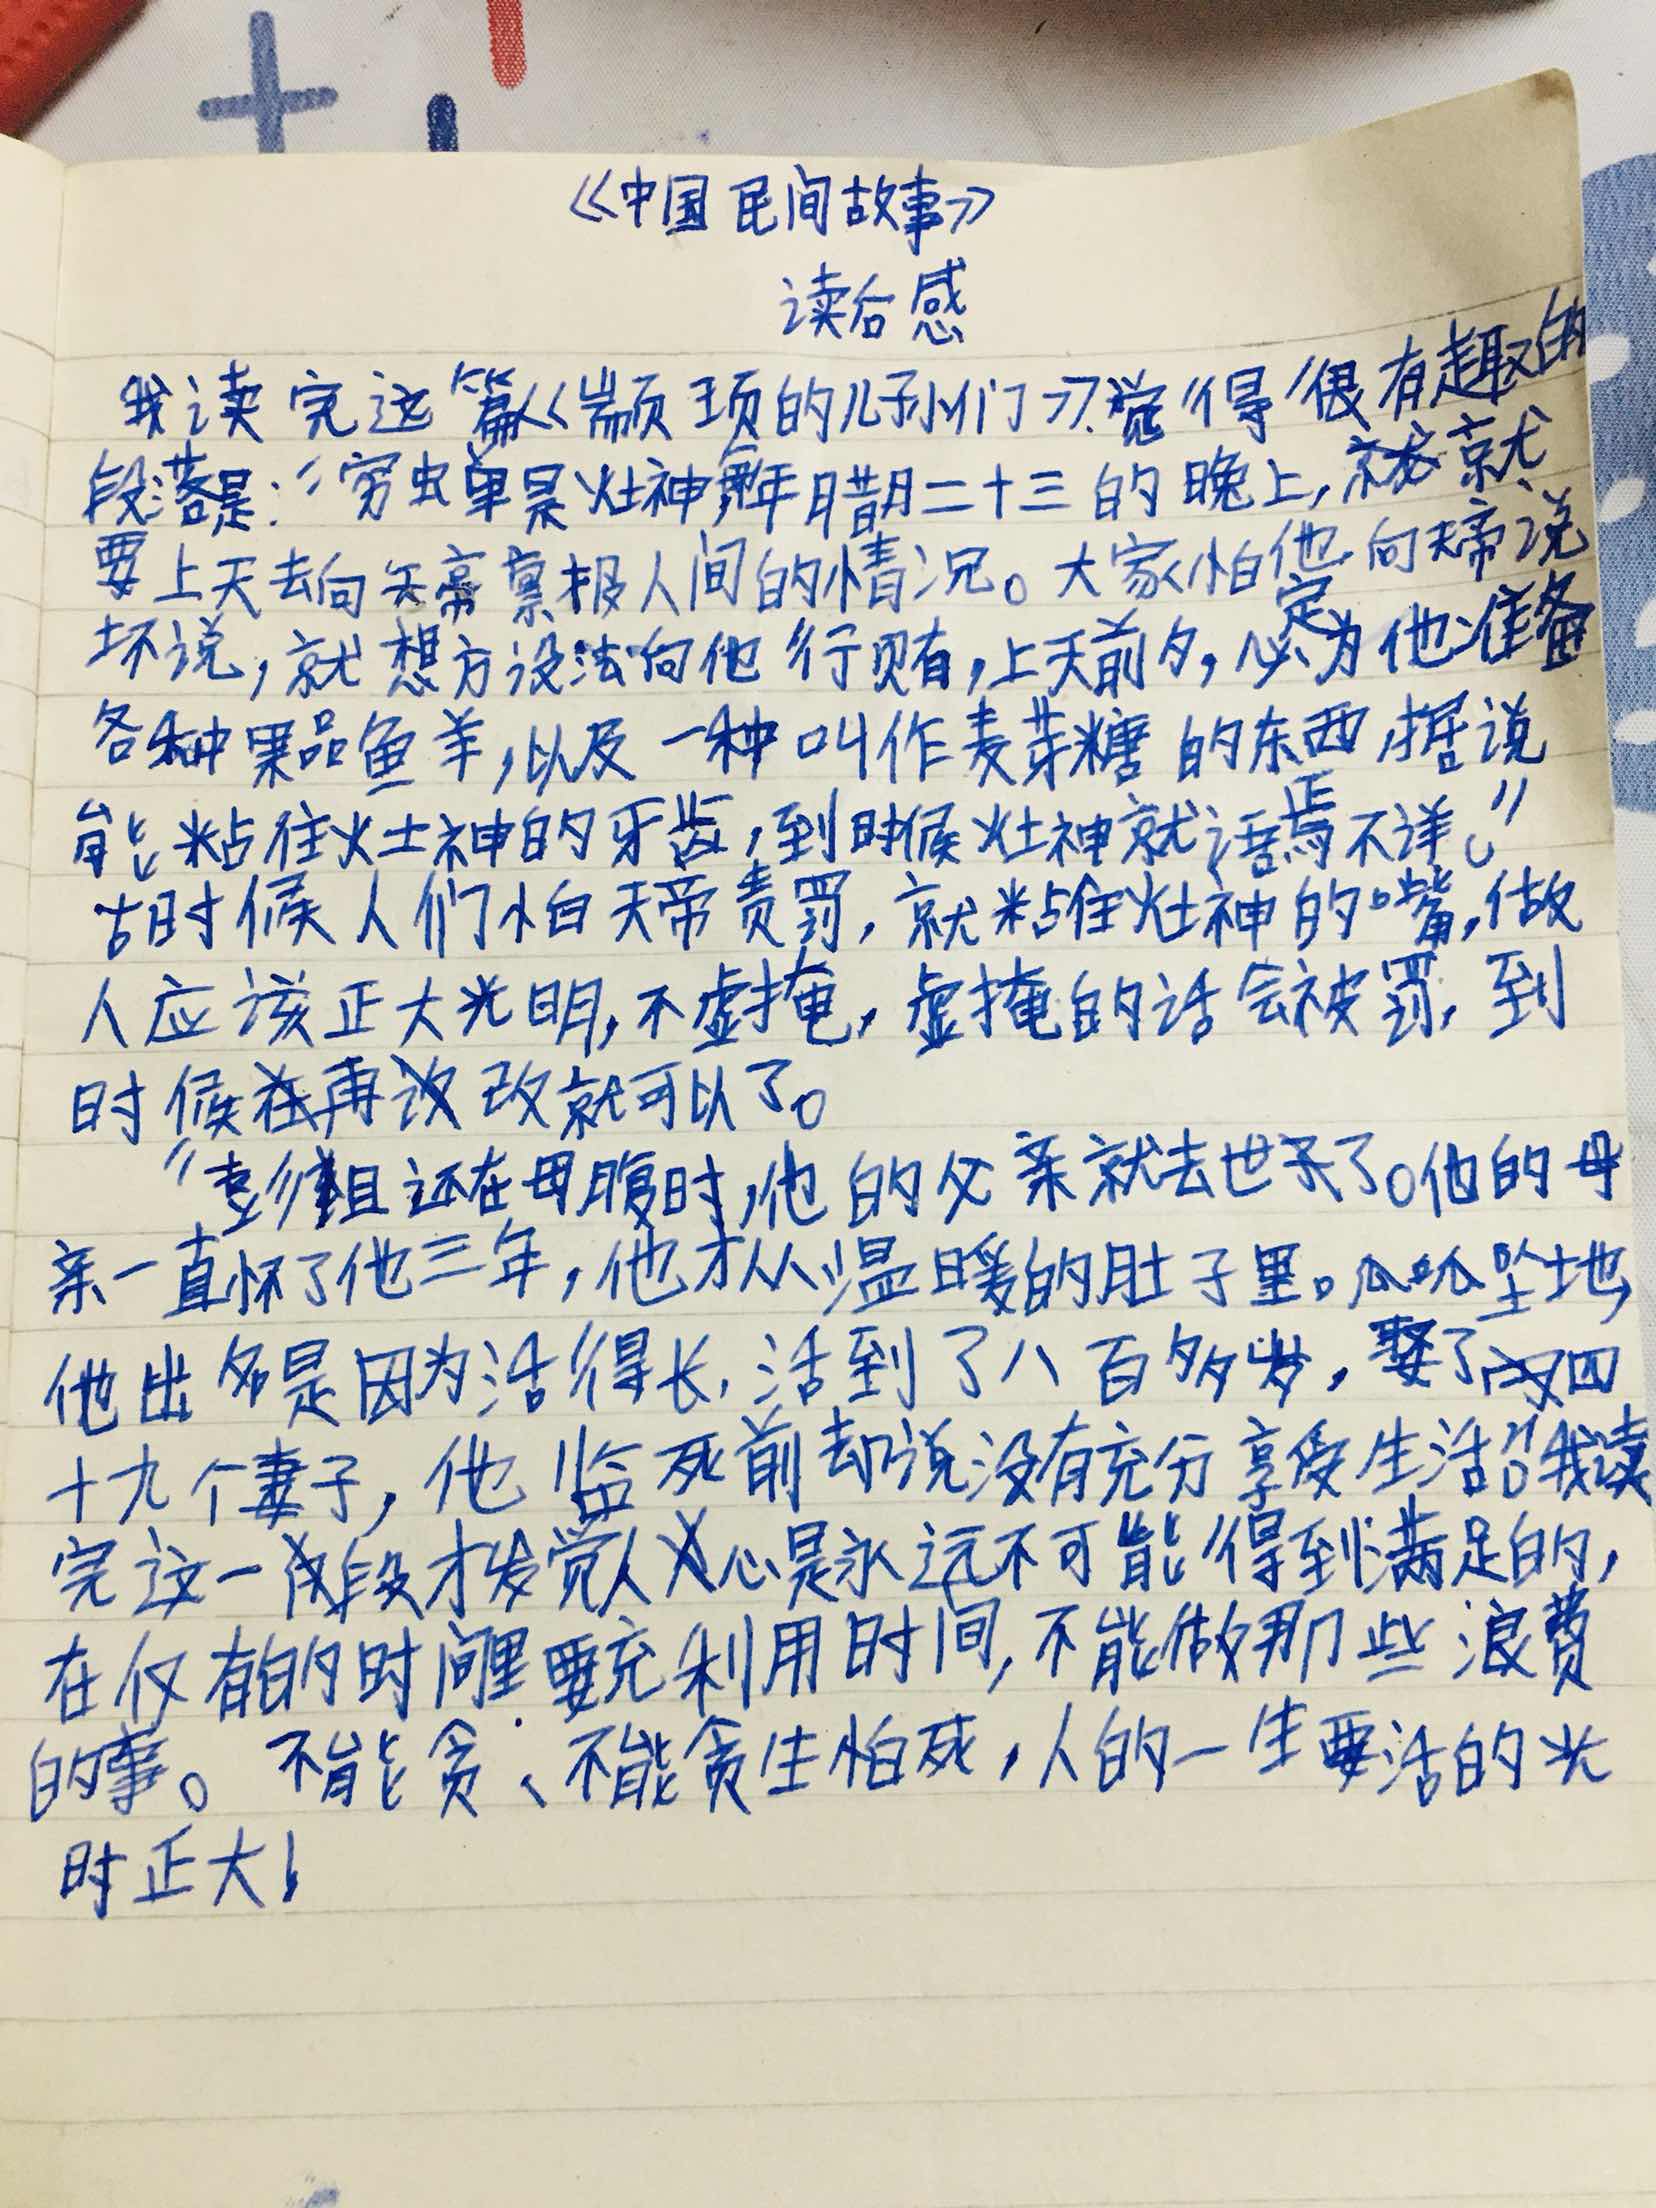 《中国民间故事》
读后感
我读完这篇《颛顼的儿孙们》觉得很有趣的
段落是：“穷虫单是灶神每年腊月二十三的晚上，就
要上天去向天帝禀报人间的情况。大家怕他向天帝说
坏说，就想方设法向他行贿，上天前夕，必定为他准备
各种果品鱼羊，以及一种叫作麦芽糖的东西，据说
能粘住灶神的牙齿，到时候灶神就语焉不详。”
古时候人们怕天帝责罚，就粘住灶神的嘴，做
人应该正大光明，不虚掩，虚掩的话会被罚，到
时候再改就可以了。
“彭祖还在母腹时，他的父亲就去世了。他的母
亲一直怀了他三年，他才从温暖的肚子里。呱呱坠地，
他出名是因为活得长，活到了八百多岁，娶了四
十九个妻子，他临死前却说没有充分享受生活。”我读
完这一段才发觉人心是永远不可能得到满足的，
在仅有的时间里要充利用时间，不能做那些浪费
的事。不能贪、不能贪生怕死，人的一生要活的光
时正大！